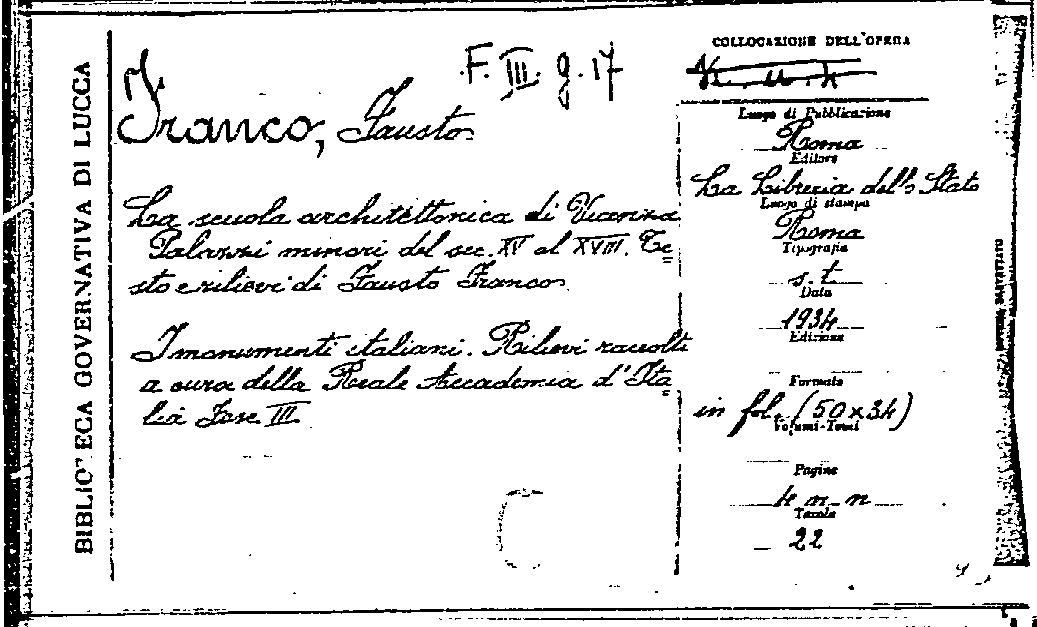 BIBLIOTECA GOVERNATIVA DI LUCCA
F. III. g. 17
Franco, Fausto
La scuola architettonica di Vicenza
Palazzi minori del sec. XV al XVIII. Te=
sto e rilievi di Fausto Franco
I monumenti italiani. Rilievi raccolti
a cura della Reale Accademia d'Ita=
lia Fasc III
COLLOCAZIONE DELL'OPERA
Luogo di Pubblicazione
Roma
Editore
La Libreria dello Stato
Luogo di stampa
Roma
Tipografia
s. t.
Data
1934
Edizione
Formato
in fol. (50x34)
Volumi-Tomi
Pagine
4 n n
Tavole
22